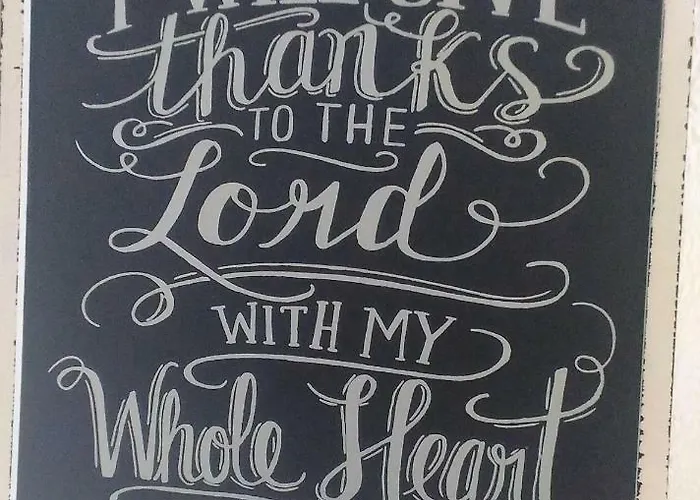 I WILL GIVE
thanks
TO THE
Lord
WITH MY
Whole Heart